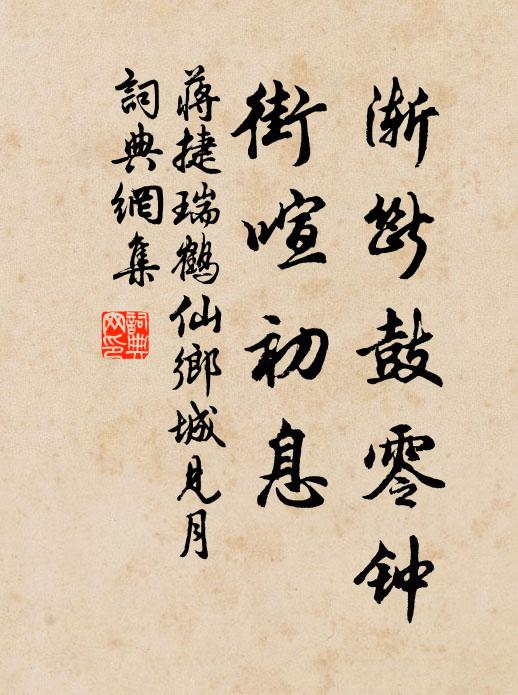 渐断鼓零钟
街喧初息
蒋捷瑞鹤仙鄉城見月
詞典網集
詞典網印